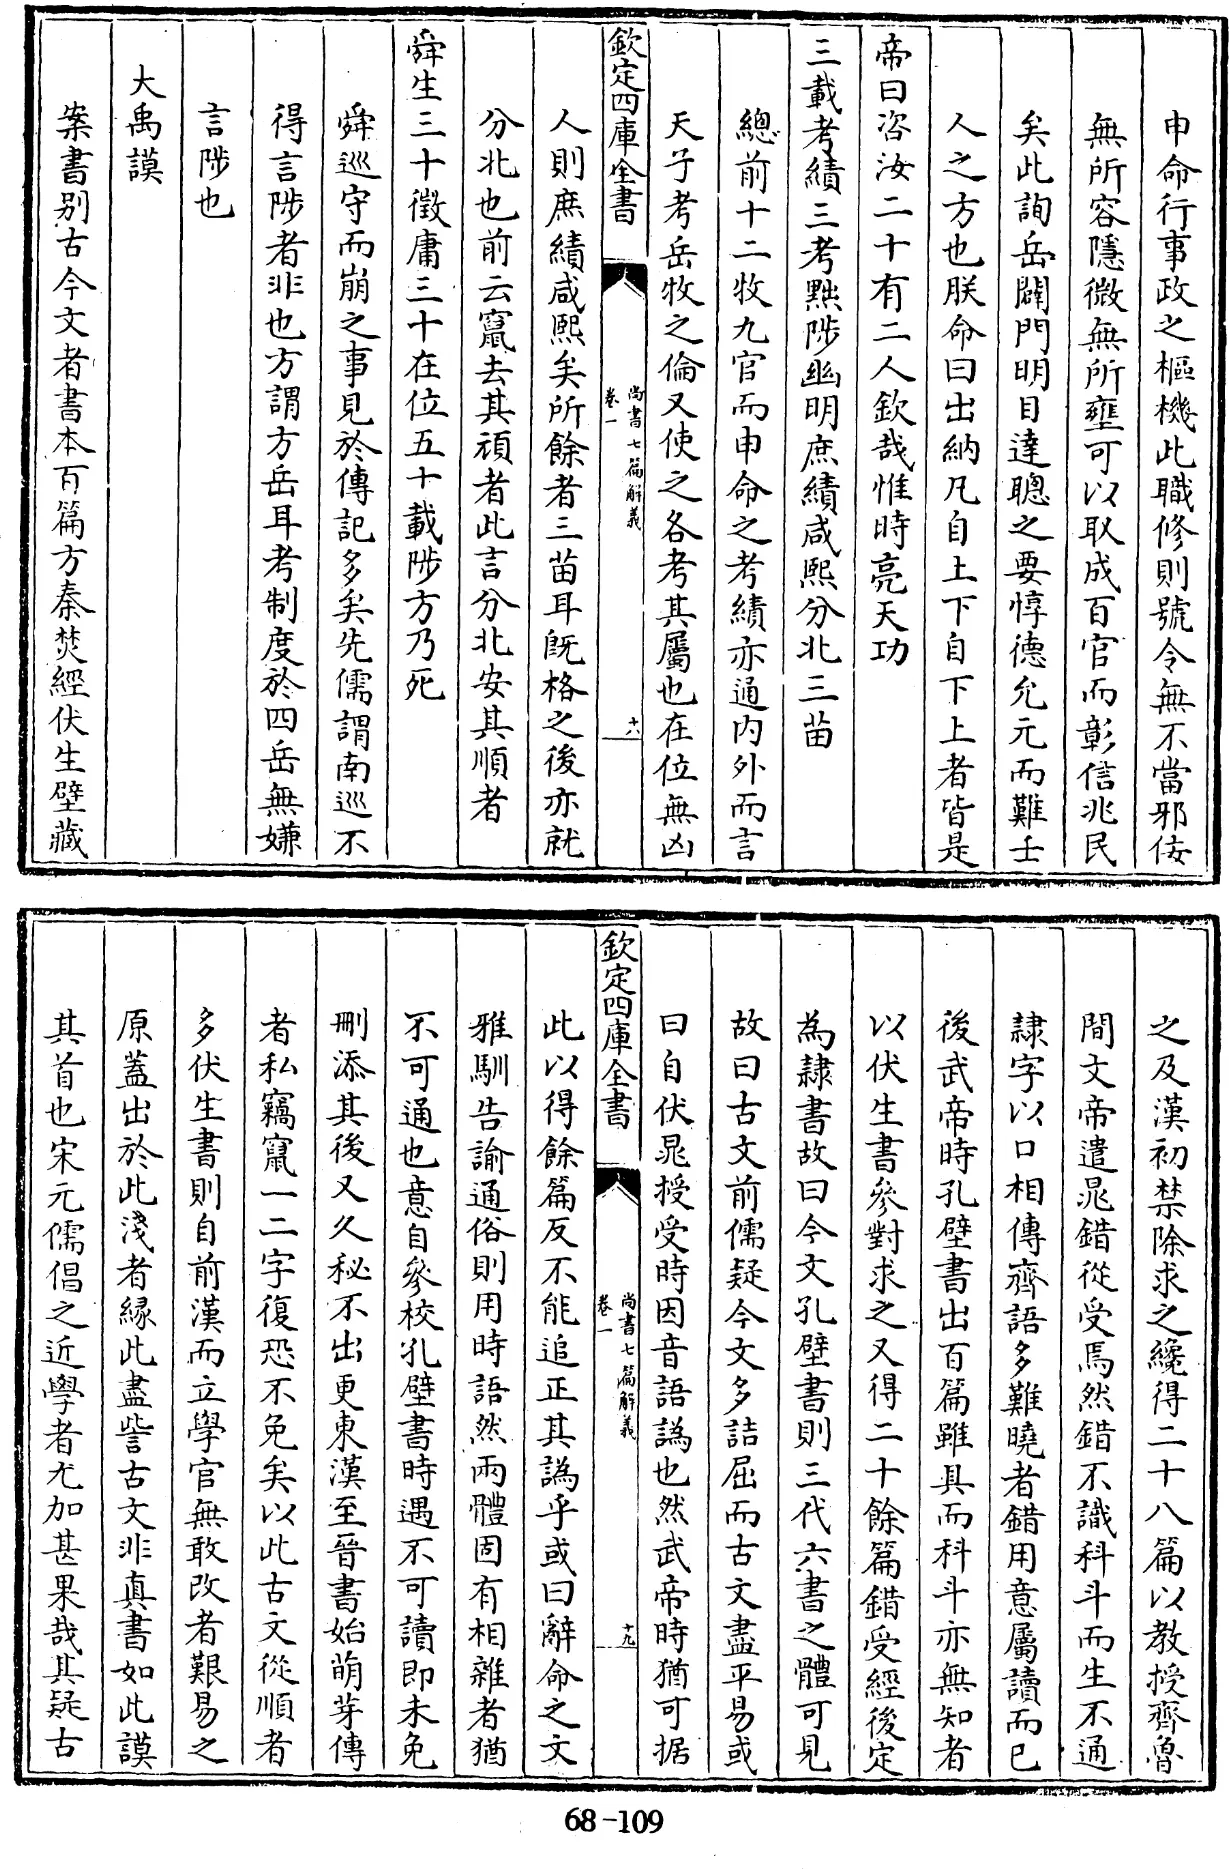 申命行事政之樞機此職修則號令無不當邪佞
無所容隱微無所壅可以取成百官而彰信兆民
矣此詢岳闢門明目達聰之要惇德允元而難壬
人之方也朕命曰出納凡自上下自下上者皆是
帝曰咨汝二十有二人欽哉惟時亮天功
三載考績三考黜陟幽明庶績咸熙分北三苗
總前十二牧九官而申命之考績亦通内外而言
天子考岳牧之倫又使之各考其屬也在位無凶
欽定四庫全書
尚書七篇解義
卷一
十八
人則庶績咸熙矣所餘者三苗耳既格之後亦就
分北也前云竄去其頑者此言分北安其順者
舜生三十徵庸三十在位五十載陟方乃死
舜巡守而崩之事見於傳記多矣先儒謂南巡不
得言陟者非也方謂方岳耳考制度於四岳無嫌
言陟也
大禹謨
案書别古今文者書本百篇方秦焚經伏生壁藏
之及漢初禁除求之纔得二十八篇以教授齊魯
間文帝遣鼂錯從受焉然錯不識科斗而生不通
隸字以口相傳齊語多難曉者錯用意屬讀而已
後武帝時孔壁書出百篇雖具而科斗亦無知者
以伏生書參對求之又得二十餘篇錯受經後定
為隸書故曰今文孔壁書則三代六書之體可見
故曰古文前儒疑今文多詰屈而古文盡平易或
曰自伏鼂授受時因音語譌也然武帝時猶可据
欽定四庫全書
尚書七篇解義
卷一
十九
此以得餘篇反不能追正其譌乎或曰辭命之文
雅馴告諭通俗則用時語然兩體固有相雜者猶
不可通也意自參校孔壁書時遇不可讀即未免
刪添其後又久秘不出更東漢至晉書始萌芽傳
者私竊竄一二字復恐不免矣以此古文從順者
多伏生書則自前漢而立學官無敢改者艱易之
原蓋出於此淺者縁此盡訾古文非真書如此謨
其首也宋元儒倡之近學者尤加甚果哉其疑古
68-109